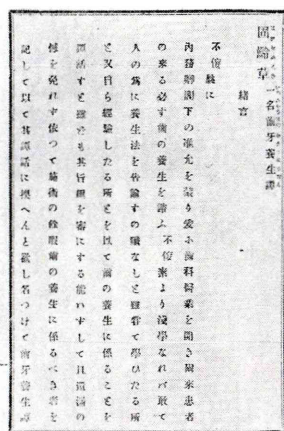 固齢草 一名歯牙養生譚
緒言
不佞曩に
内務卿閣下の准允を蒙り爰に歯科術業を開き爾來患者
の來る必す歯の養生を諭ふ不佞素より淺學なれバ敢て
人の爲に養生法を告諭すの職なしと雖甞て學ひたる所
と又自ら經驗したる所とを以て歯の養生に係ることを
譚話すと雖とも其旨趣を審にする能ハすして且遺漏の
憾を免れす依つて施術の餘暇歯の養生に係るべき者を
記して以て其譚話に換へんと欲し名つけて歯牙養生譚